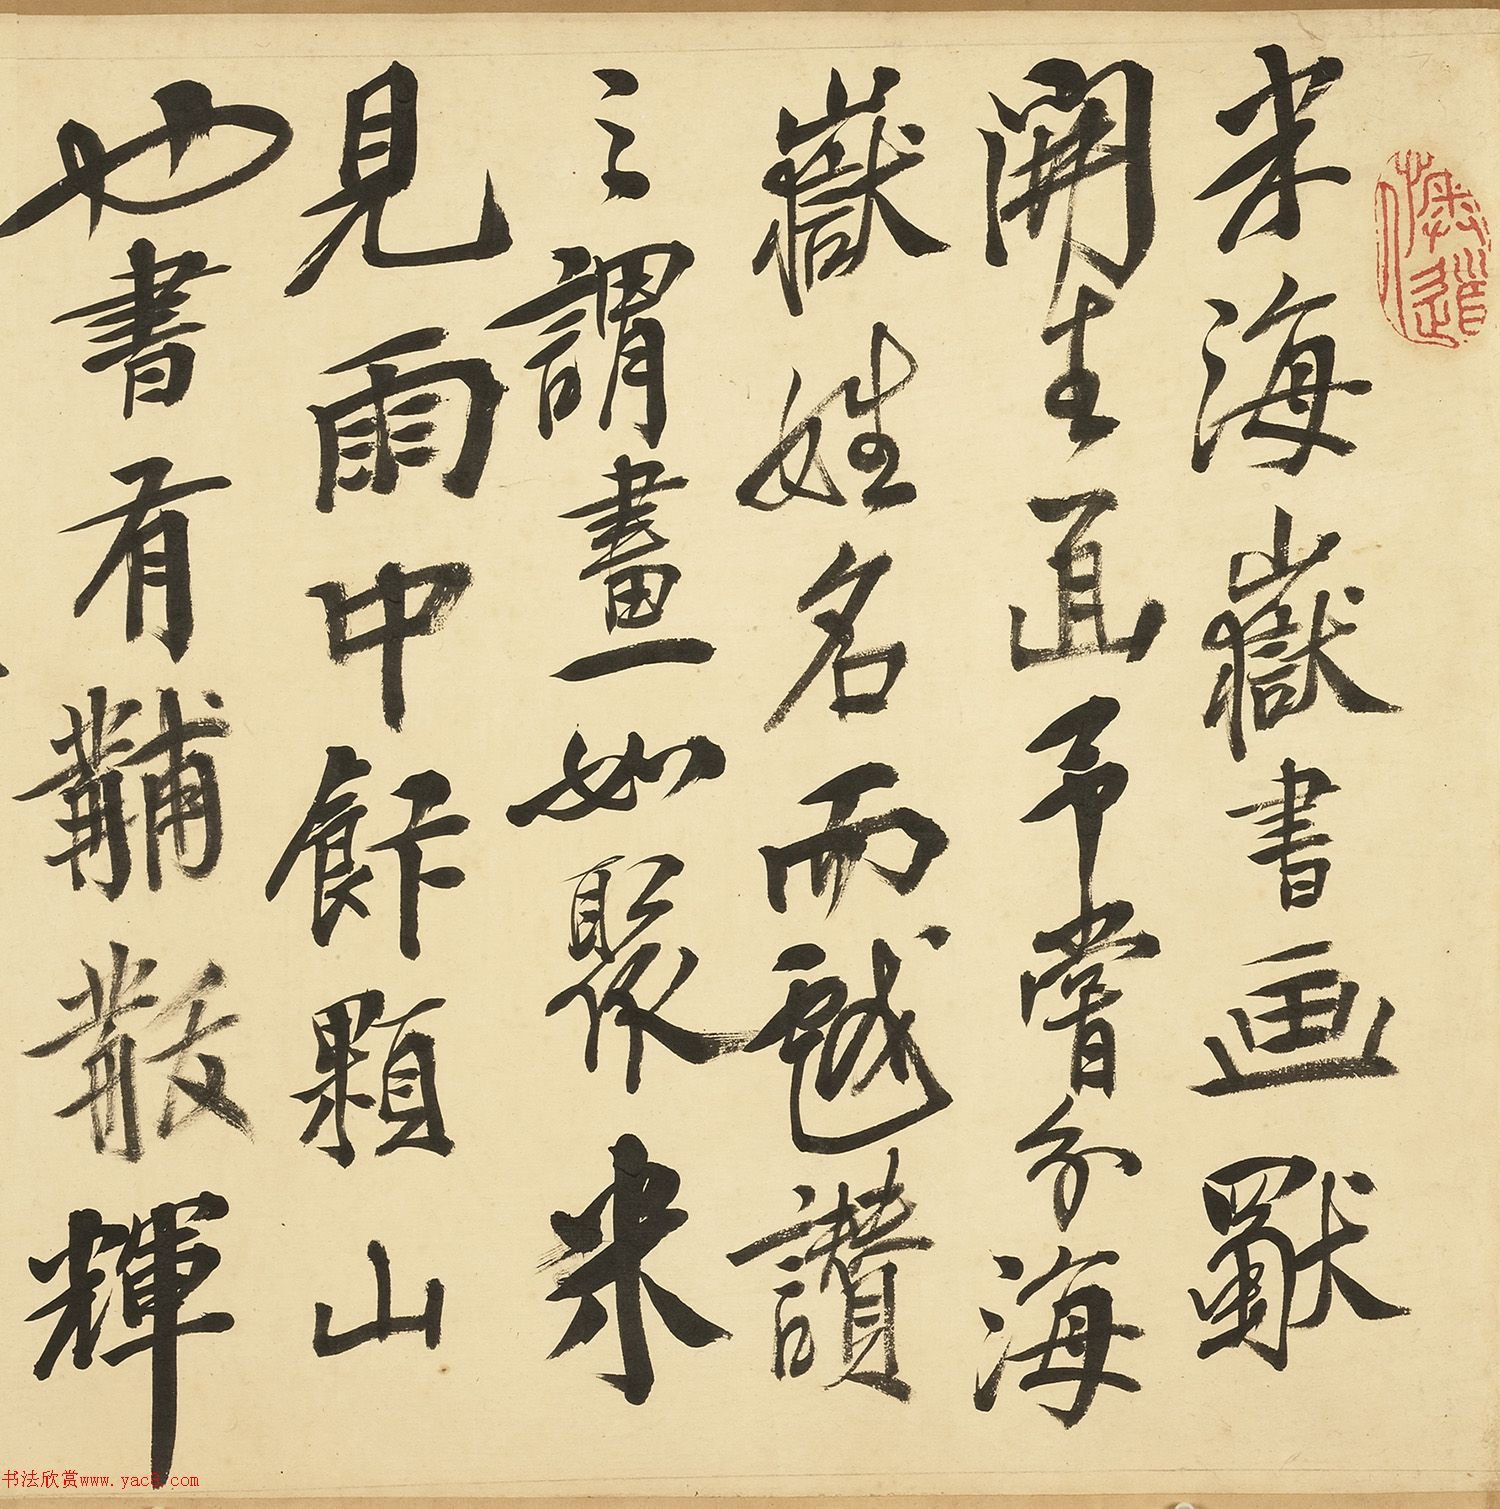 米海嶽書画獨
開生面予嘗分海
嶽姓名而戲讃
之謂畫一如聚米
見雨中飰顆山
也書有黼黻輝
书法欣赏www.yac8.com